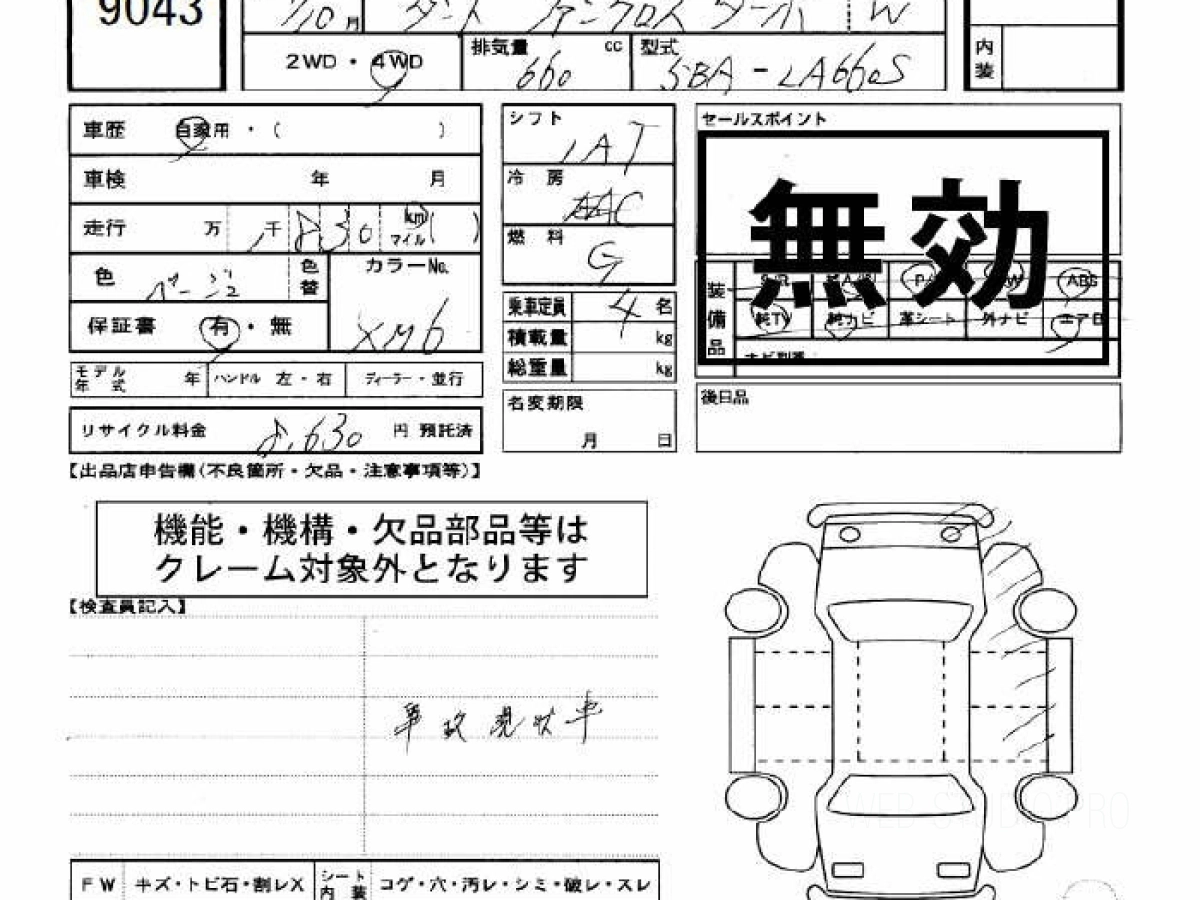 9043
/10月 タント ファンクロス ターボ W
2WD・4WD 排気量 660 cc 型式 5BA-LA660S
内装
車歴 自家用・( )
車検 年 月
走行 万 1千830 km マイル( )
色 ベージュ 色替 カラーNo. XM6
保証書 有・無
モデル年式 年 ハンドル 左・右 ディーラー・並行
リサイクル料金 8,630 円 預託済
シフト IAT
冷房 AAC
燃料 G
乗車定員 4 名
積載量 kg
総重量 kg
名変期限 月 日
セールスポイント
無効
装備品 ABS
純TV 純ナビ 革シート 外ナビ エアB
後日品
【出品店申告欄(不良箇所・欠品・注意事項等)】
機能・機構・欠品部品等は
クレーム対象外となります
【検査員記入】
事故現状車
FW キズ・トビ石・割レX シート内装 コゲ・穴・汚レ・シミ・破レ・スレ